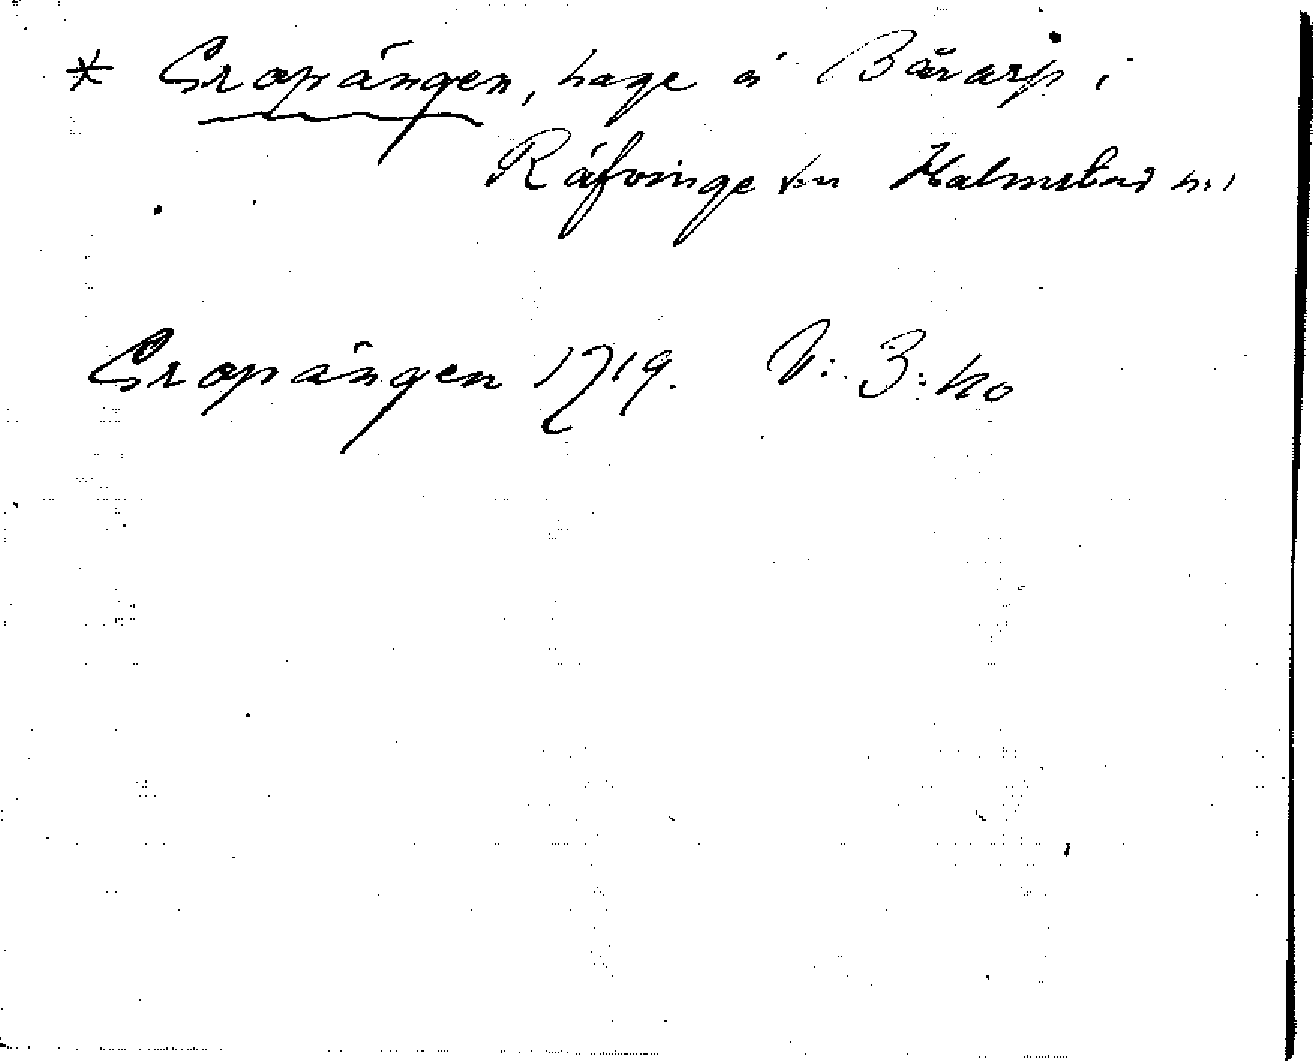 * Gropängen, hage å Bårarp i
Räfvinge sn Halmstad hd
Gropängen 1719. V: 3: 40